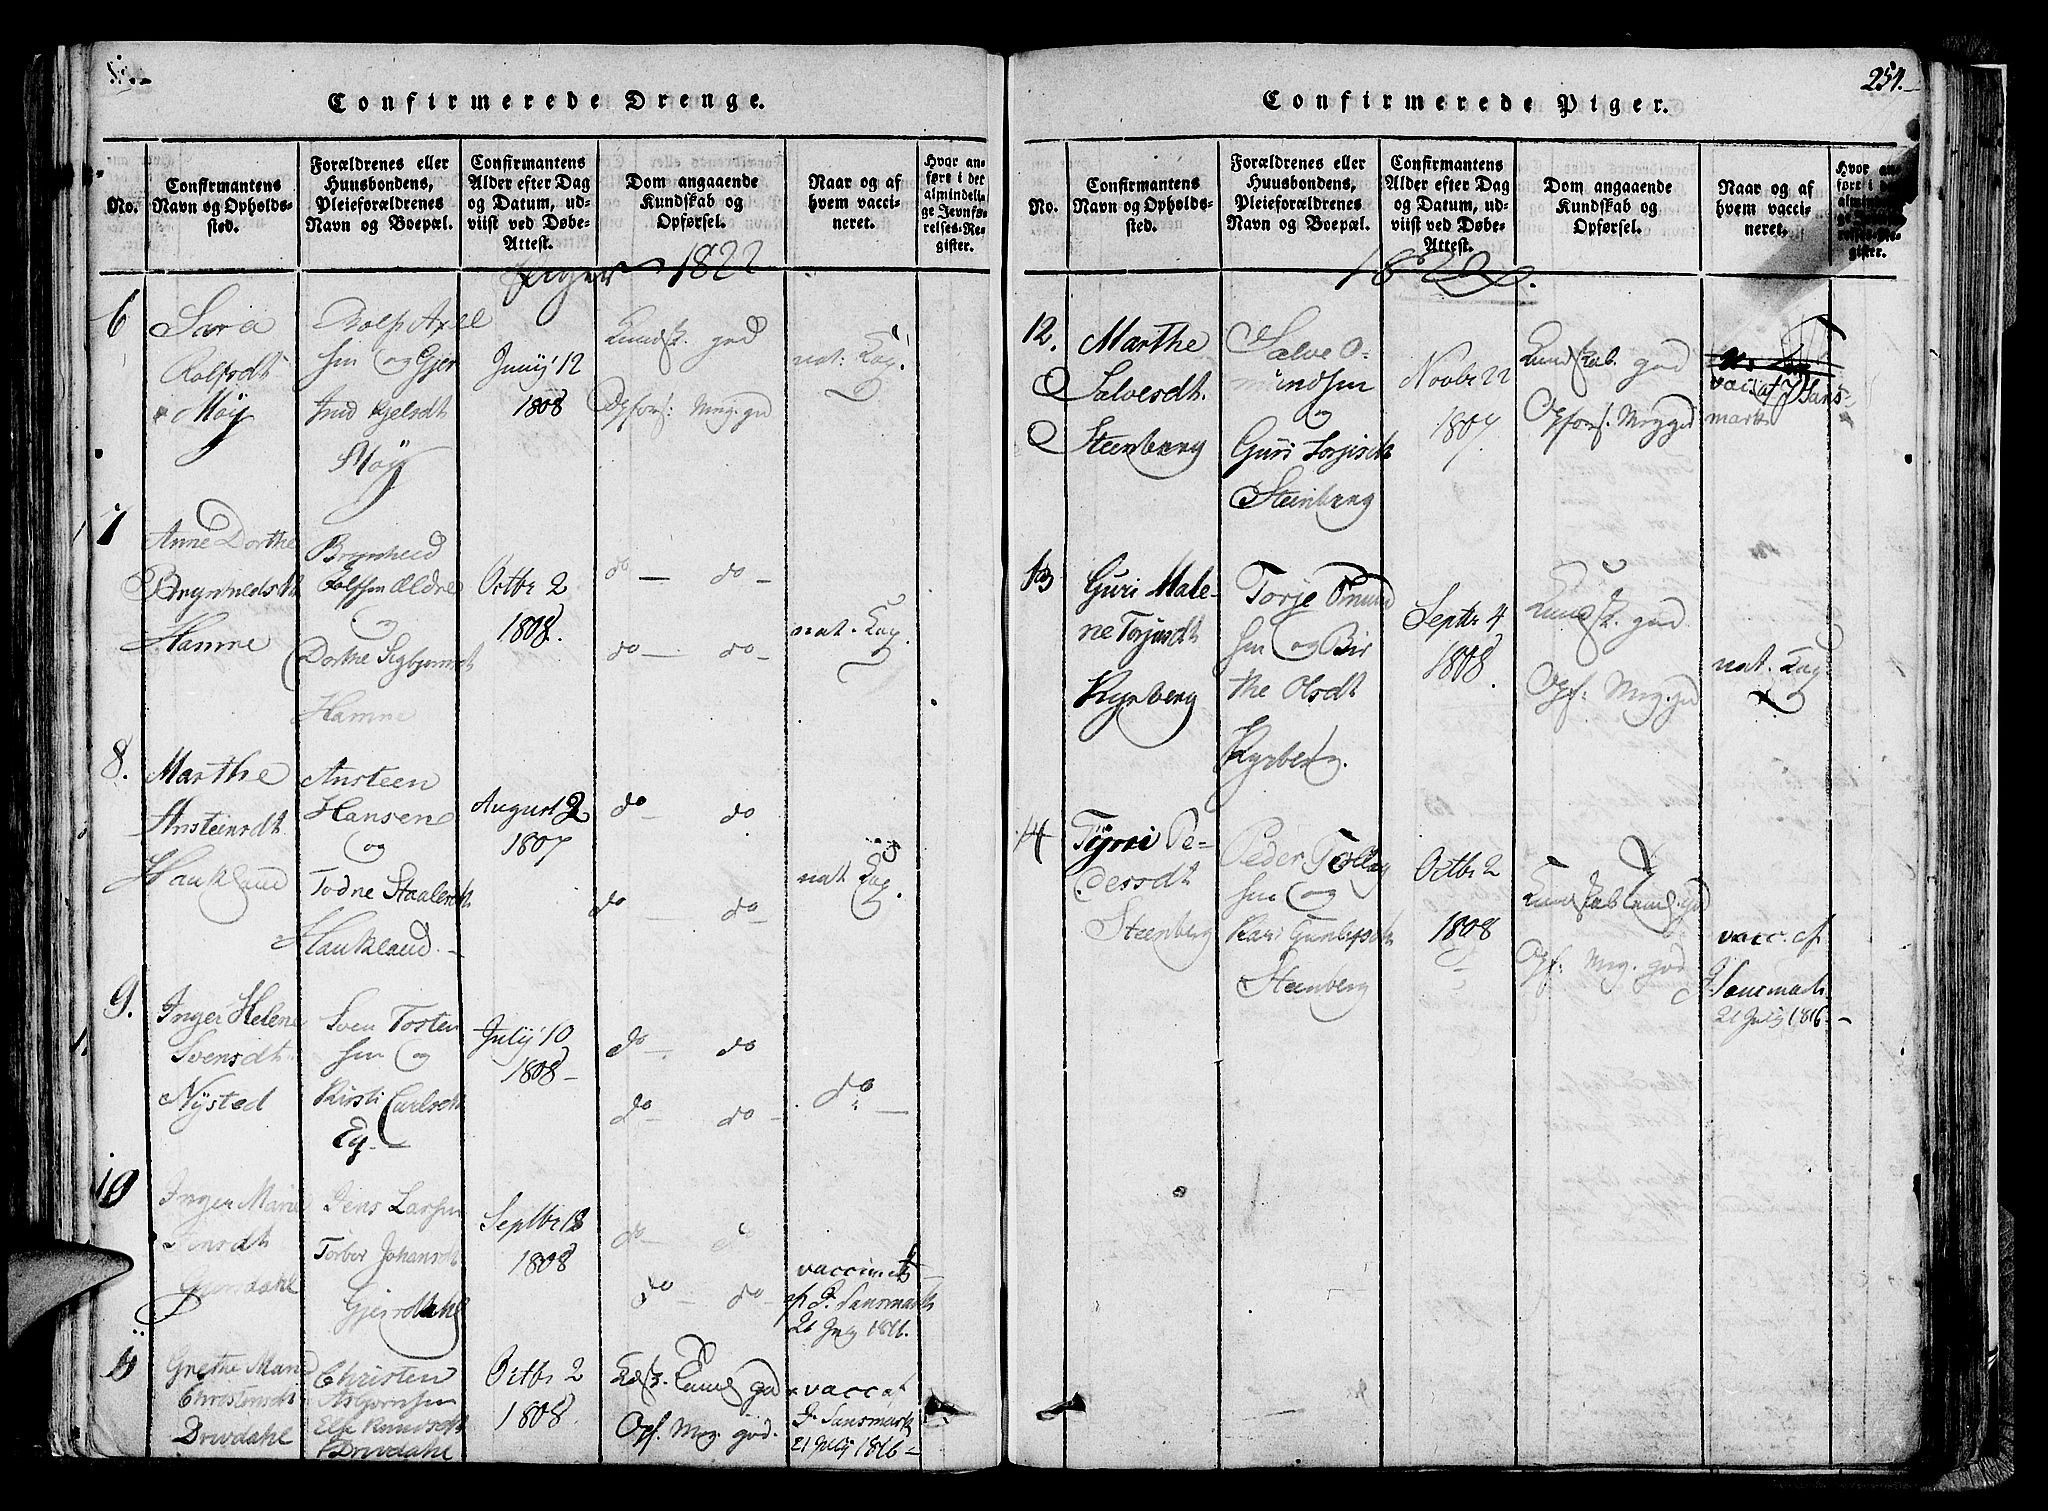 Confirmerede Drenge.
No.
Confirmantens
Navn og Opholds-
sted.
Forældrenes eller
Huusbondens,
Pleieforældrenes
Navn og Boepæl.
Confirmantens
Alder efter Dag
og Datum, ud-
viist ved Døbe-
Attest.
Dom angaaende
Kundskab og
Opførsel.
Naar og af
hvem vacci-
neret.
Hvor an-
ført i det
almindeli-
ge Jevnfø-
relses-Re-
gister.
Piger 1822
6
Sara
Rolfsdt
Møÿ
Rolf Axel
sen og Gjer
trud Gjelsdt
Møÿ
Junij 12
1808
Kundsk. god
Opførs: Meg. god
nat: Kop.
7
Anne Dorthe
Brynildsdt
Hamne
Brynheld
Rolfsen Ældre
og
Dorthe Sigbjørnsdt
Hamne
Octbr 2
1808.
do — do —
do — do —
nat. Kop.
8.
Marthe
Ansteinsdt
Haukland
Ansteen
Hansen
og
Todne Staalesdt
Haukland. —
August 2
1807
do — do
do — do —
nat Kop.
9.
Inger Helene
Svensdt
Nÿsted
Sven Tosten
sen og
Kirsti Carlsdt
Eg —
Julij 10
1808 —
do — do
do — do —
do —
10
Inger Marie
Jensdt
Gjerdahl
Jens Larsen
Torbor Johansdt
Gjerdahl
Septbr 18
1808
do — do
do — do —
vaccineret
af J. Sansmark
21 July 1816.
11
Grethe Marie
Christensdt
Drivdahl
Christen
Asbjørnsen
Else Knudsdt
Drivdahl
Octbr 2
1808.
Kdsk. temel. god
Opf. Meg. god.
vacc af
J. Sansmark
21 Julij 1816 —
254.
Confirmerede Piger.
No.
Confirmantens
Navn og Opholds-
sted.
Forældrenes eller
Huusbondens,
Pleieforældrenes
Navn og Boepæl.
Confirmantens
Alder efter Dag
og Datum, ud-
viist ved Døbe-
Attest.
Dom angaaende
Kundskab og
Opførsel.
Naar og af
hvem vacci-
neret.
Hvor an-
ført i det
almindeli-
ge Jevnfø-
relses-Re-
gister.
1822.
12.
Marthe
Salvesdt.
Steenberg
Salve O-
mundsen
og
Guri Torjisdt
Steinberg
Novbr 22
1807.
Kundskab. god
Opførs. Meg god
vacc af J Sans-
mark
13
Guri Male-
ne Torjusdt
Rysberg
Torje Omund
sen og Bir
the Olsdt
Rysberg.
Septbr 4
1808.
Kundsk. god
Opf: Meg. god
nat. Kop
14
Tÿri Pe-
dersdt
Steenberg
Peder Tollag
sen og
Kari Gunlefsdt
Steenberg
Octbr 2
1808
Kundskab temel. god
Opf: Meg. god
vacc. af
J. Sansmark
21 Julij 1816 —